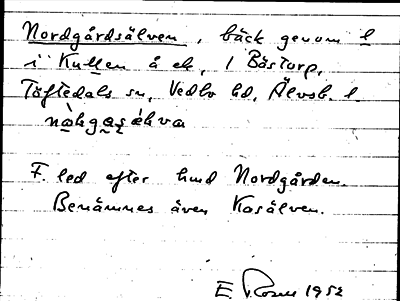 Nordgårdsälven, bäck genom l
i Kullen å ek, 1 Båstorp,
Töftedals sn, Vedbo hd, Älvsb. l.
nàhgaṣéhva
F. led efter hmd Nordgården.
Benämnes även Kasälven.
E. 1952